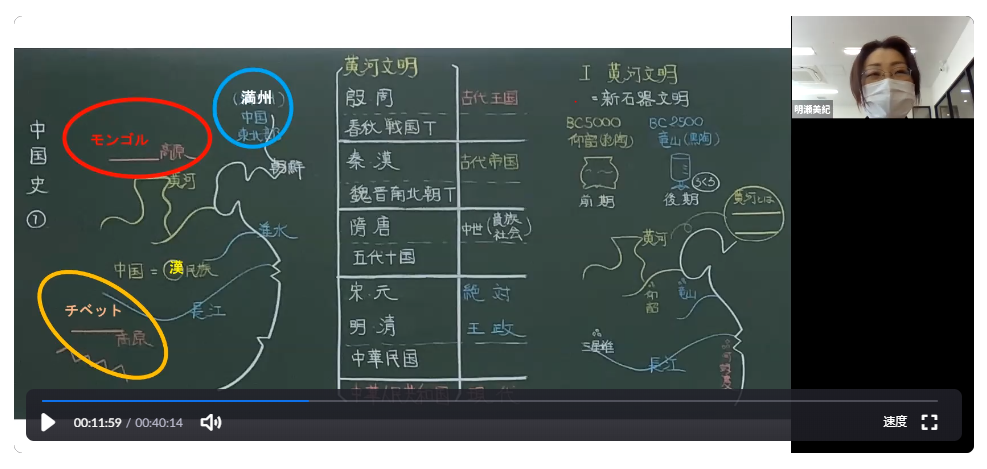 中国史
①
モンゴル
高原
(満州)
中国
東北部
朝鮮
黄河
淮水
中国＝漢民族
長江
チベット
高原
黄河文明
殷 周
古代王国
春秋 戦国 T
秦 漢
古代帝国
魏晋南北朝 T
隋 唐
中世(貴族社会)
五代十国
宋 元
絶対
明・清
王政
中華民国
Ⅰ 黄河文明
＝新石器文明
BC5000
BC2500
仰韶(彩陶)
竜山(黒陶)
ろくろ
前期
後期
黄河とは
黄河
仰韶
竜山
三星堆
長江
明瀬美紀
00:11:59 / 00:40:14
速度